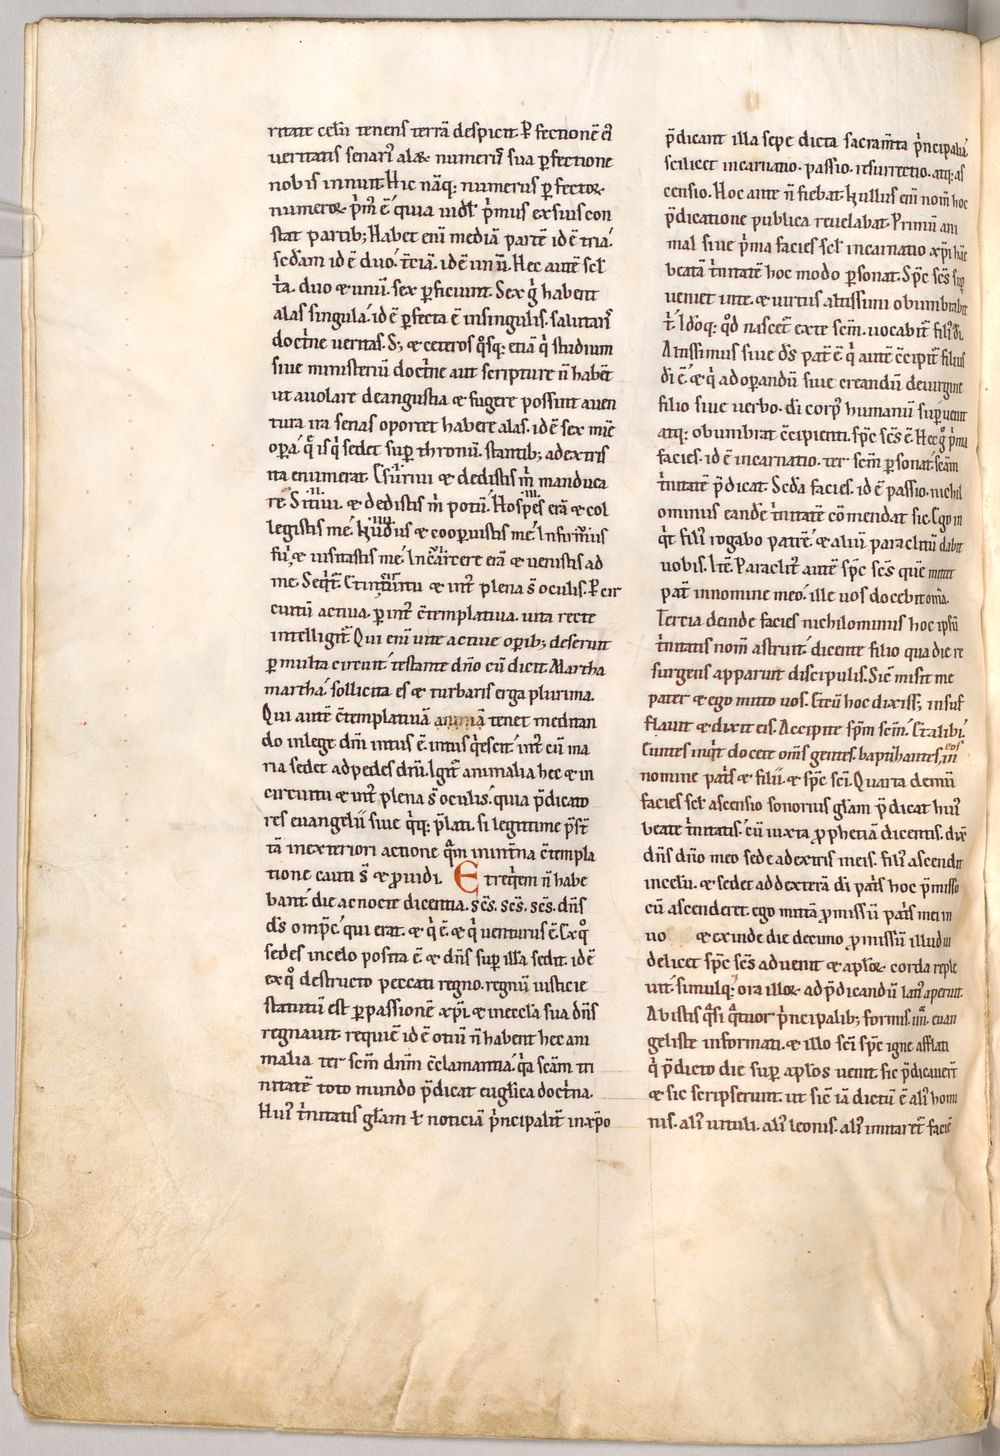 ritate celū tenens terrā despicit. P̱fectionē ei᷒
veritatis senari᷒ alaꝝ numerus sua ꝑfectione
nobis innuit. Hic nāq; numerus ꝑfectoꝝ
numeroꝝ p̄m᷒ ē quia uidel̄ p̄mus ex suis con
stat partib; Habet eni mediā partē id ē tria.
scd̄am id ē duo. t̄ciā. id ē unū. Hec autē scl̄
t̄a. duo & unū. sex ꝑficiunt. Sex q̄ habent
alas singula. id ē ꝑfecta ē in singulis. salutaris
doct̄ne veritas. S; & ceteros q̊sq; etiā q̄ studium
siue ministeriū doct̄ne aut scripture n̄ habēt
ut auolare de angustia & fugere possint auen
tura ira senas oportet habere alas. id ē sex mīe
oꝑa. q̄ is q̄ sedet suꝑ thronū. stantib; a dextris
ita enumerat. Esuriui & dedistis m̄ manduca
re. Sitiui. & dedistis m̄ potū. Hospes erā & col
legistis me. Nudus & cooꝑuistis me. Infirmus
fui & uisitastis me. In carcere erā & uenistis ad
me. Seqt̄. Et in circuitu & int᷒ plena s̄ oculis. P̱ cir
cuitū actiua. ꝑ int᷒ c̄templatiua. uita recte
intelligit̄ Qui eni uite actiue oꝑib; deserunt
ꝑ multa circueūt testante dn̄o cū dicit. Martha
martha. sollicita es & turbaris erga plurima.
Qui autē c̄templatiuā animā tenet meditan
do in lege dn̄i intus ē. intus q̄escit. int᷒ cū ma
ria sedet ad pedes dn̄i. Igit̄ animalia hec & in
circuitu & int᷒ plena s̄ oculis. quia p̄dicato
res euangelii siue q̄q; p̄lati. si legittime p̄st̄
tā in exteriori actione q̄m in int̄na c̄templa
tione cauti s̄ & ꝓuidi. Et req̄em n̄ habe
bant die ac nocte dicentia. sc̄s. sc̄s. sc̄s. dn̄s
ds̄ omp̄c. qui erat. & q̄ ē & q̄ uenturus ē. Ex q̊
sedes in celo posita ē & dn̄s suꝑ illā sedit. id ē
ex q̊ destructo peccati regno. regnū iusticie
statutū est ꝑ passionē xp̄i. & in eccl̄a sua dn̄s
regnauit. requiē id ē otiū n̄ habent hec ani
malia ter sc̄m dn̄m c̄clamantia. q̄a sc̄am tri
nitatē toto mundo p̄dicat euglica doct̄na.
Hui᷒ t̄nitatis glam ł noticiā p̄ncipalit̄ in xp̄o
p̄dicant illa sepe dicta sacram̄ta p̄ncipalia.
scilicet incarnatio. passio. resurrectio. atq; as
censio. Hoc ante n̄ fiebat. Nullus em̄ nom̄ hoc
p̄dicatione publica reuelabat. Primū ani
mal siue p̄ma facies scl̄ incarnatio xp̄i hāc
beatā t̄nitatē hoc modo ꝑsonat. Sp̄c sc̄s suꝑ
ueniet in te. & uirtus altissimi obumbrabit
t̄. Idoq; q̊d nascet̄ ex te sc̄m. uocabit̄ fili᷒ di.
Altissimus siue ds̄ pat̄ ē q̄ autē c̄cipit̄ filius
di ē. & q̄ ad oꝑandū siue creandū de uirgine
filio siue uerbo. di corp᷒ humanū suꝑuenit
atq; obumbrat c̄cipienti. sp̄c sc̄s ē. Hec g̊ p̄ma
facies. id ē incarnatio. ter sc̄m ꝑsonat. sc̄am
t̄nitatē p̄dicat. Scd̄a facies. id ē passio. nichil
ominus eandē t̄nitatē cōmendat sic. Ego in
q̄t fili᷒ rogabo patrē. & aliū paraclitū dabit
uobis. Itē. Paraclit᷒ autē sp̄c sc̄s quē mittet
pat̄ in nomine meo. ille uos docebit om̄ia.
Tercia deinde facies nichilominus hoc ipsū
t̄nitatis nom̄ astruit. dicente filio qua die re
surgens apparuit discipulis. Sic̄ misit me
pater & ego mitto uos. Et cū hoc dixiss; insuf
flauit & dixit eis. Accipite sp̄m sc̄m. Et alibi.
Euntes inq̄t docete om̄s gentes. baptizantes eos in
nomine pat̄s & filii. & sp̄c sc̄i. Quarta demū
facies scl̄ ascensio sonorius glam p̄dicat hui᷒
beate t̄nitatis. cū iuxta ꝓphetiā dicentis. dix̄
dn̄s dn̄o meo sede a dextris meis. fili᷒ ascendit
in celū. & sedet ad dexterā di pat̄s hoc p̄misso
cū ascenderet. ego mittā ꝓmissū pat̄s mei in
uo & exinde die decimo ꝓmissū illud ui
delicet sp̄c sc̄s aduenit & ap̄loꝝ corda reple
uit. simulq; ora illoꝝ ad p̄dicandū lati᷒ aperuit.
Ab istis q̄si q̄tuor p̄ncipalib; formis. iiii. euan
geliste informati. & illo sc̄i sp̄c igne afflati
q̄ p̄dicto die suꝑ ap̄los uenit sic p̄dicauer̄t
& sic scripserunt. ut sic̄ iā dictū ē ali᷒ homi
nis. ali᷒ uituli. ali᷒ leonis. ali᷒ imitaret̄ faciē